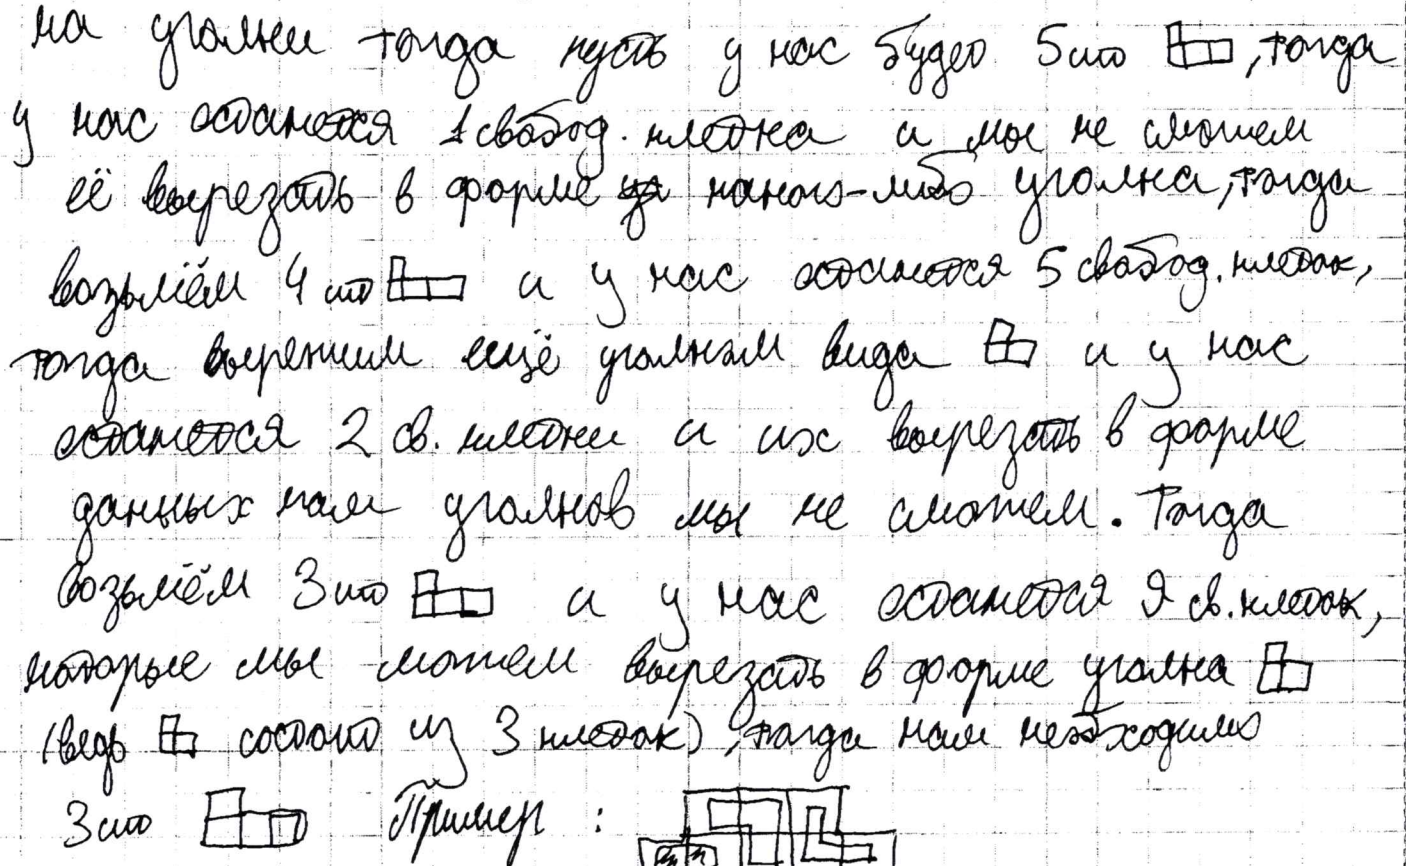 на уголки тогда пусть у нас будет 5 шт , тогда
у нас останется 1 свобод. клетка и мы не сможем
её вырезать в форме какого-либо уголка, тогда
возьмём 4 шт и у нас останется 5 свобод. клеток,
тогда вырежим ещё уголком вида и у нас
останется 2 св. клетки и их вырезать в форме
данных нам уголков мы не сможем. Тогда
возьмём 3 шт и у нас останется 9 св. клеток,
которые мы можем вырезать в форме уголка
(ведь состоит из 3 клеток), тогда нам необходимо
3 шт Пример :